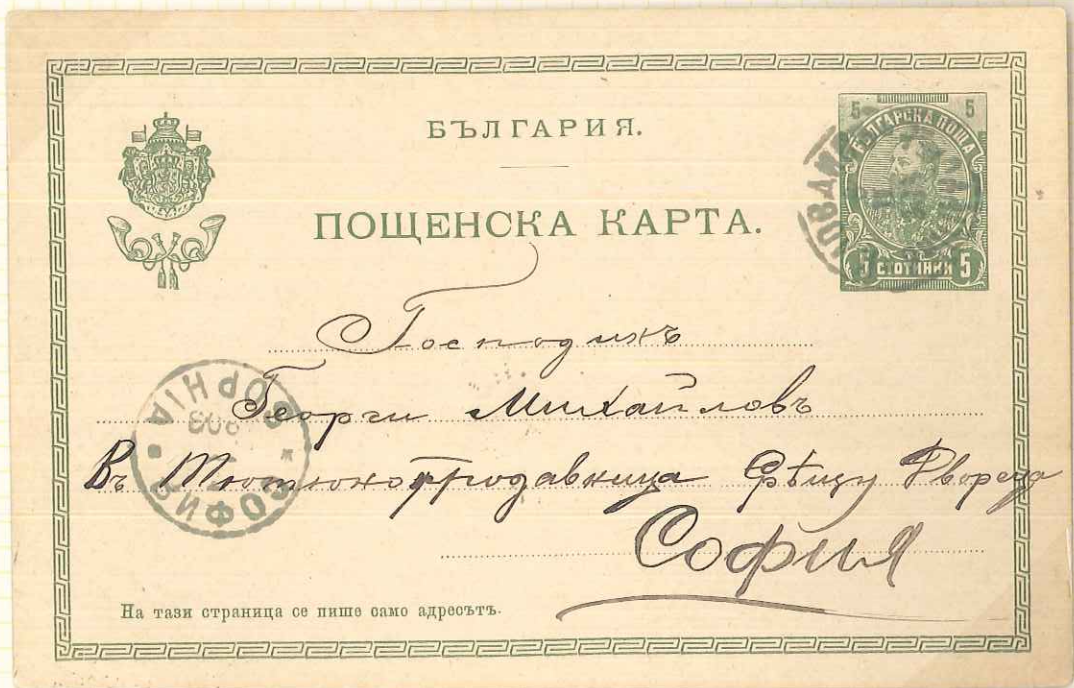 БЪЛГАРИЯ.
ПОЩЕНСКА КАРТА.
5 5
БЪЛГАРСКА ПОША
5 СТОТИНКИ 5
Господинъ
Георги Михайловъ
Въ Тютюнопродавница
София
СОФИЯ
SOPHIA
903
На тази страница се пише само адресътъ.